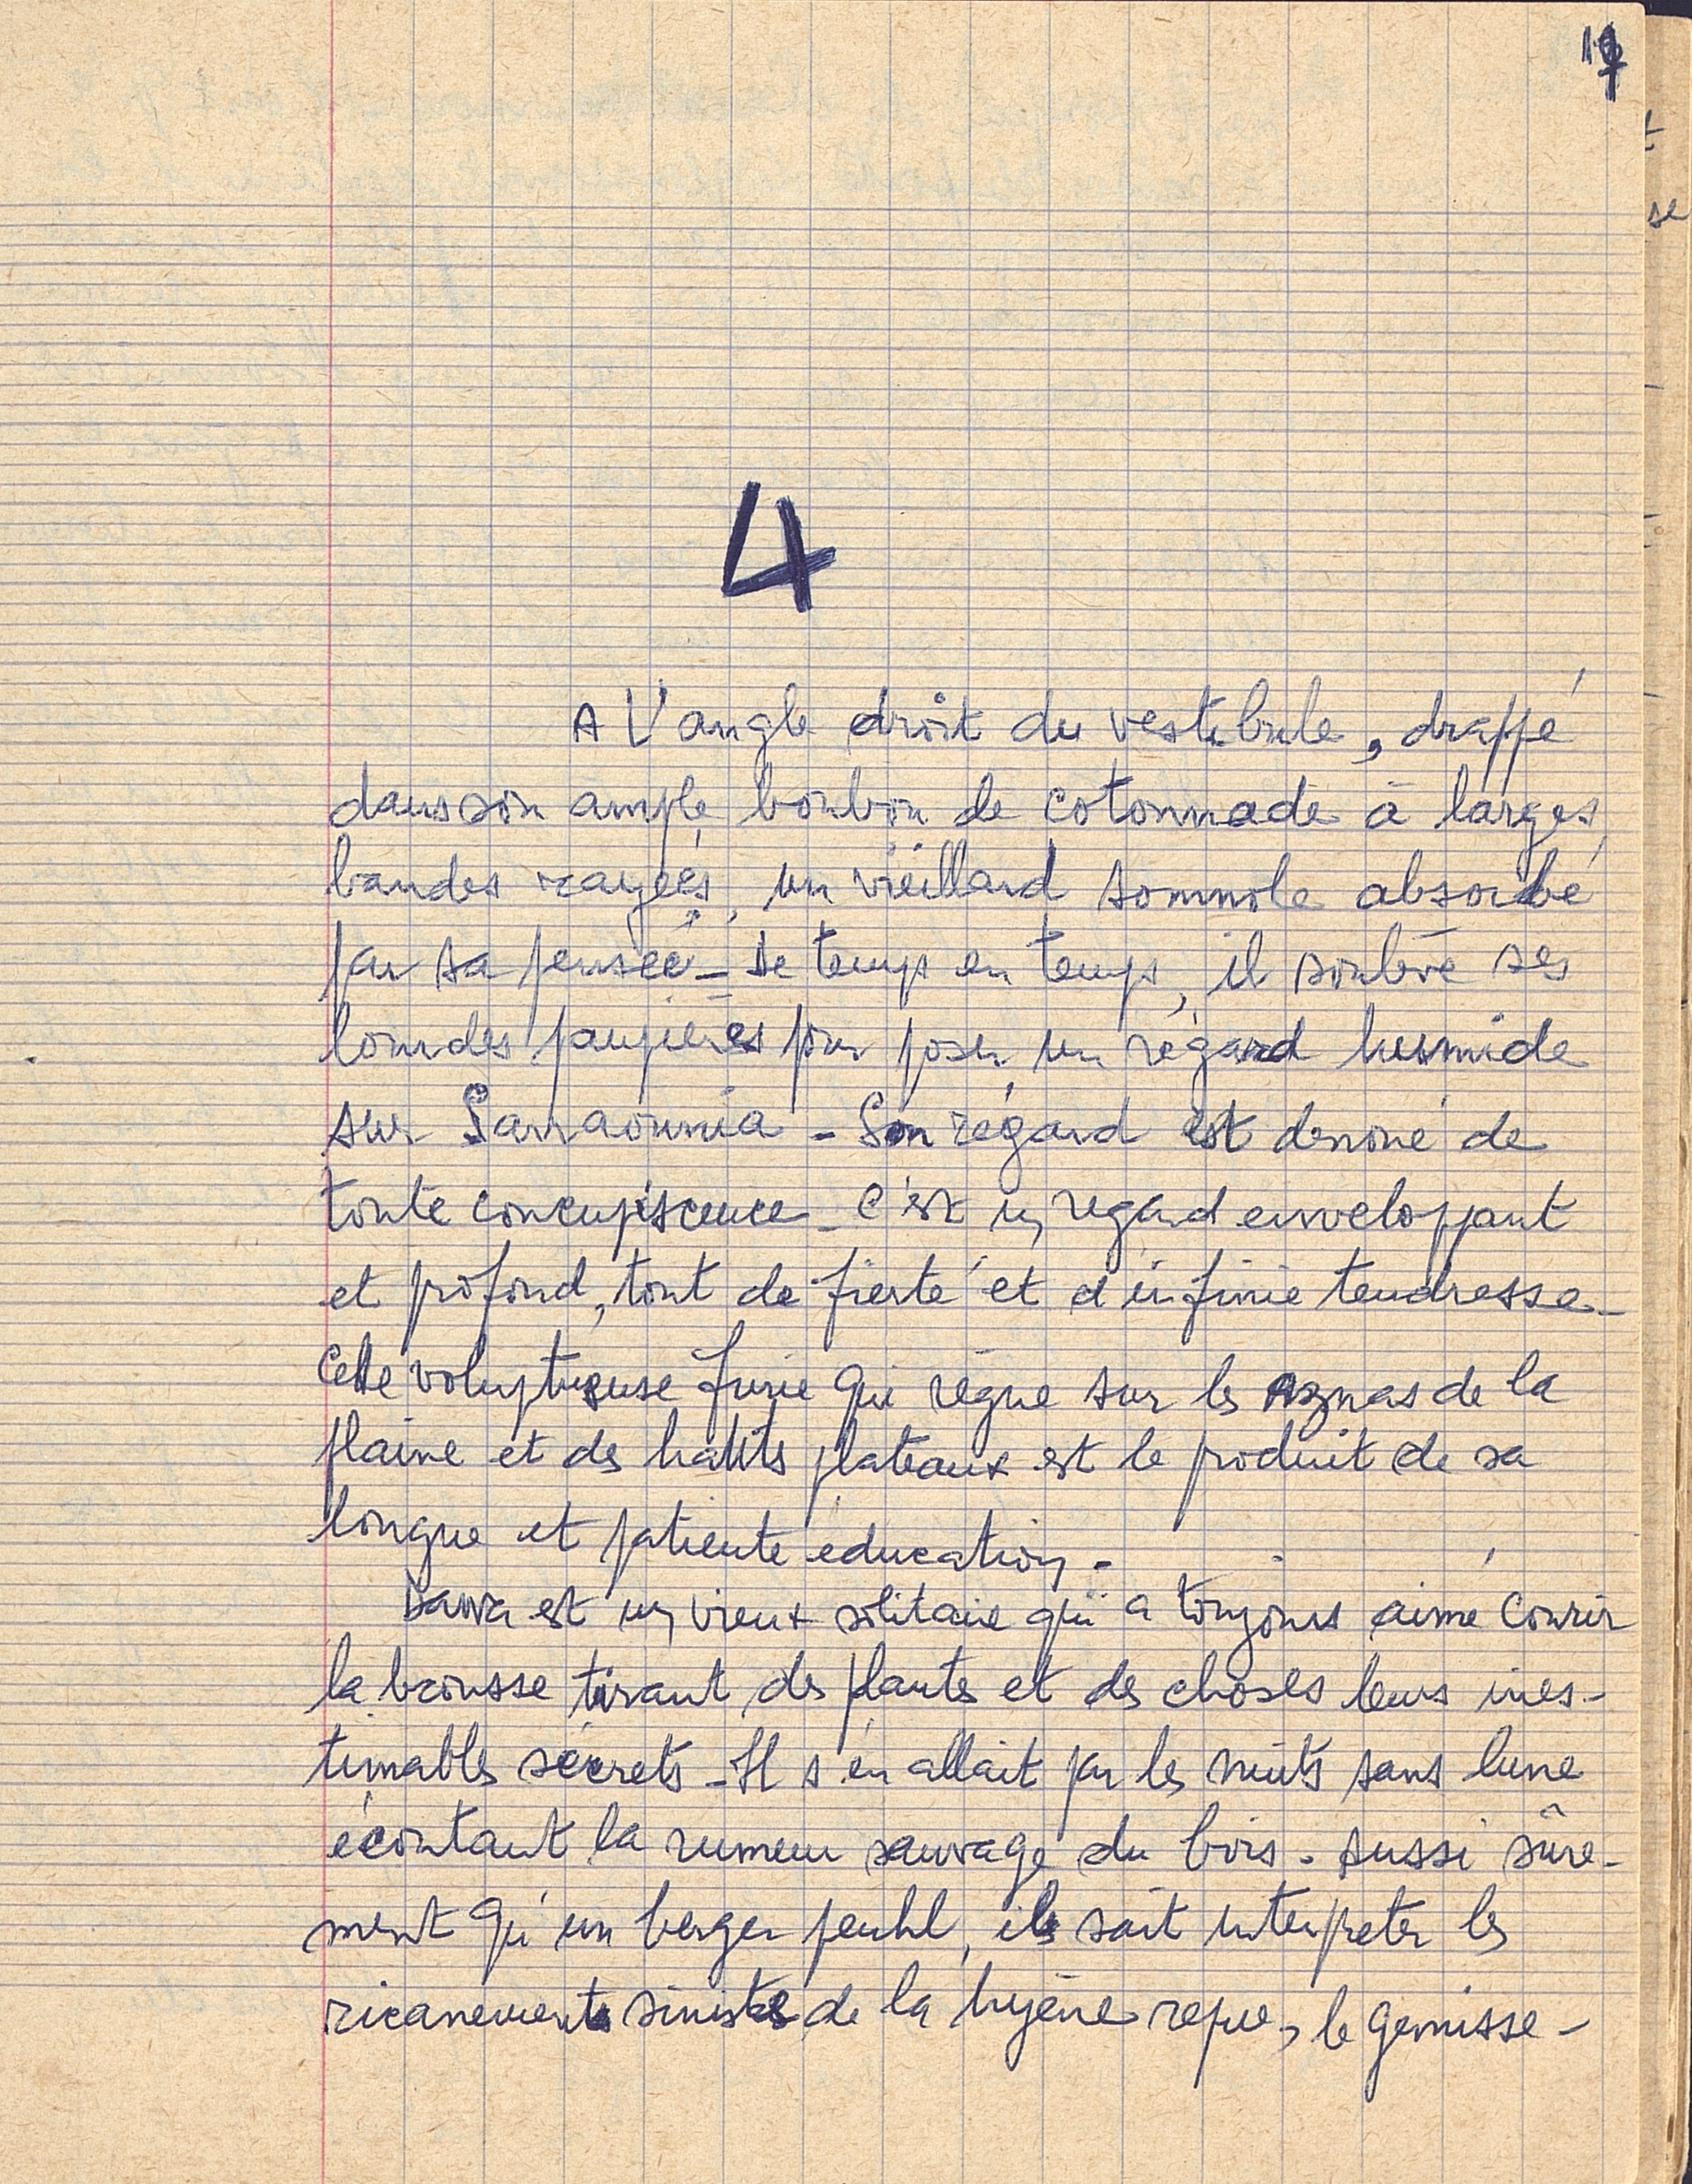 4
A l'angle droit du vestibule, drappé
dans son ample boubou de cotonnade à larges
bandes rayées, un vieillard somnole absorbé
par sa pensée - De temps en temps, il soulève ses
lourdes paupières pour poser un régard humide
sur Sarraounia - Son régard est denoué de
toute concupiscence - C'est un regard enveloppant
et profond, tout de fierté et d'infinie tendresse -
Cette voluptueuse furie qui règne sur les Aznas de la
plaine et des hauts plateaux est le produit de sa
longue et patiente éducation.
Dawa est un vieux solitaire qui a toujours aimé courir
la brousse tirant des plantes et des choses leurs ines-
timables sécrets - Il s'en allait par les nuits sans lune
écoutant la rumeur sauvage du bois. Aussi sûre-
ment qu'un berger peuhl, il sait interpreter les
ricanements sinistres de la hyène repue, le gemisse-